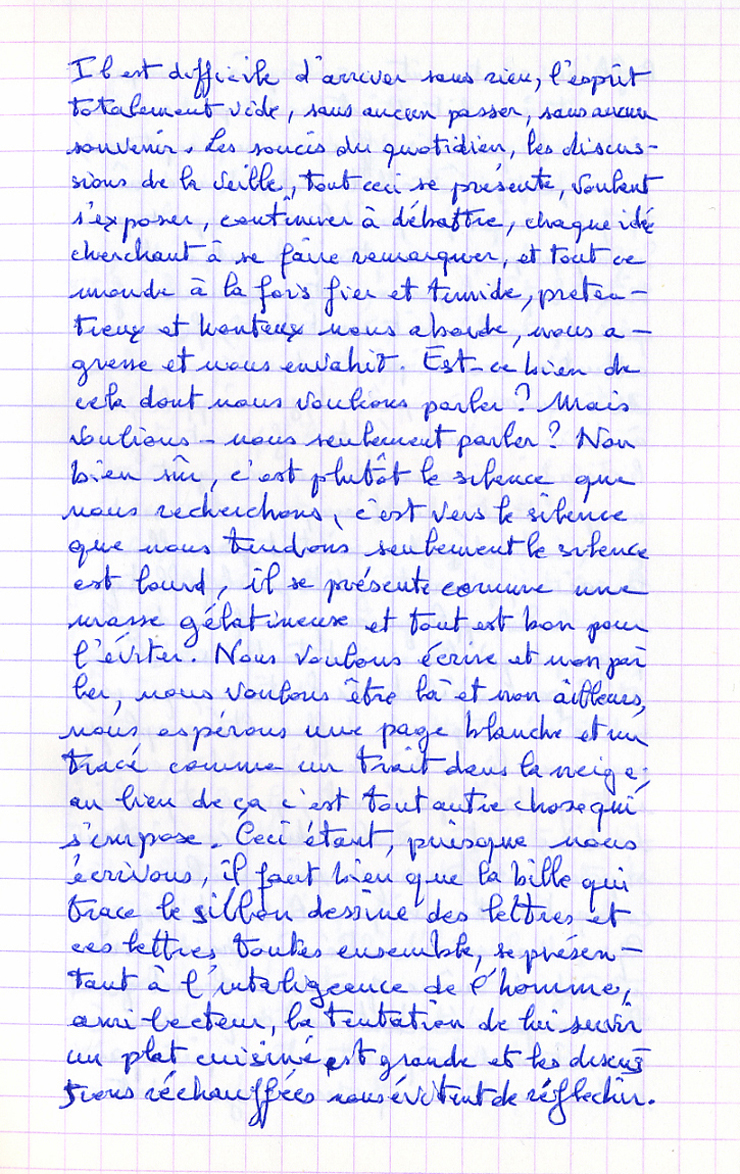 Il est difficile d'arriver sans rien, l'esprit
totalement vide, sans aucun passer, sans aucun
souvenir. Les soucis du quotidien, les discus-
sions de la veille, tout ceci se présente, voulent
s'exposer, continuer à débattre, chaque idé
cherchant à se faire remarquer, et tout ce
monde à la fois fier et timide, préten-
tieux et honteux nous aborde, nous a-
gresse et nous envahit. Est-ce bien de
cela dont nous voulions parler ? Mais
voulions-nous seulement parler ? Non
bien sûr, c'est plutôt le silence que
nous recherchons, c'est vers le silence
que nous tendons seulement le silence
est lourd, il se présente comme une
masse gélatineuse et tout est bon pour
l'éviter. Nous voulons écrire et non par
ler, nous voulons être là et non ailleurs,
nous espérons une page blanche et un
tracé comme un trait dans la neige;
au lieu de ça c'est tout autre chose qui
s'impose. Ceci étant, puisque nous
écrivons, il faut bien que la bille qui
trace le sillon dessine des lettres et
ces lettres toutes ensemble, se présen-
tant à l'inteligeance de l'homme,
ami lecteur, la tentation de lui servir
un plat cuisiné est grande et les discus
sions réchauffées nous évitent de réflechir.